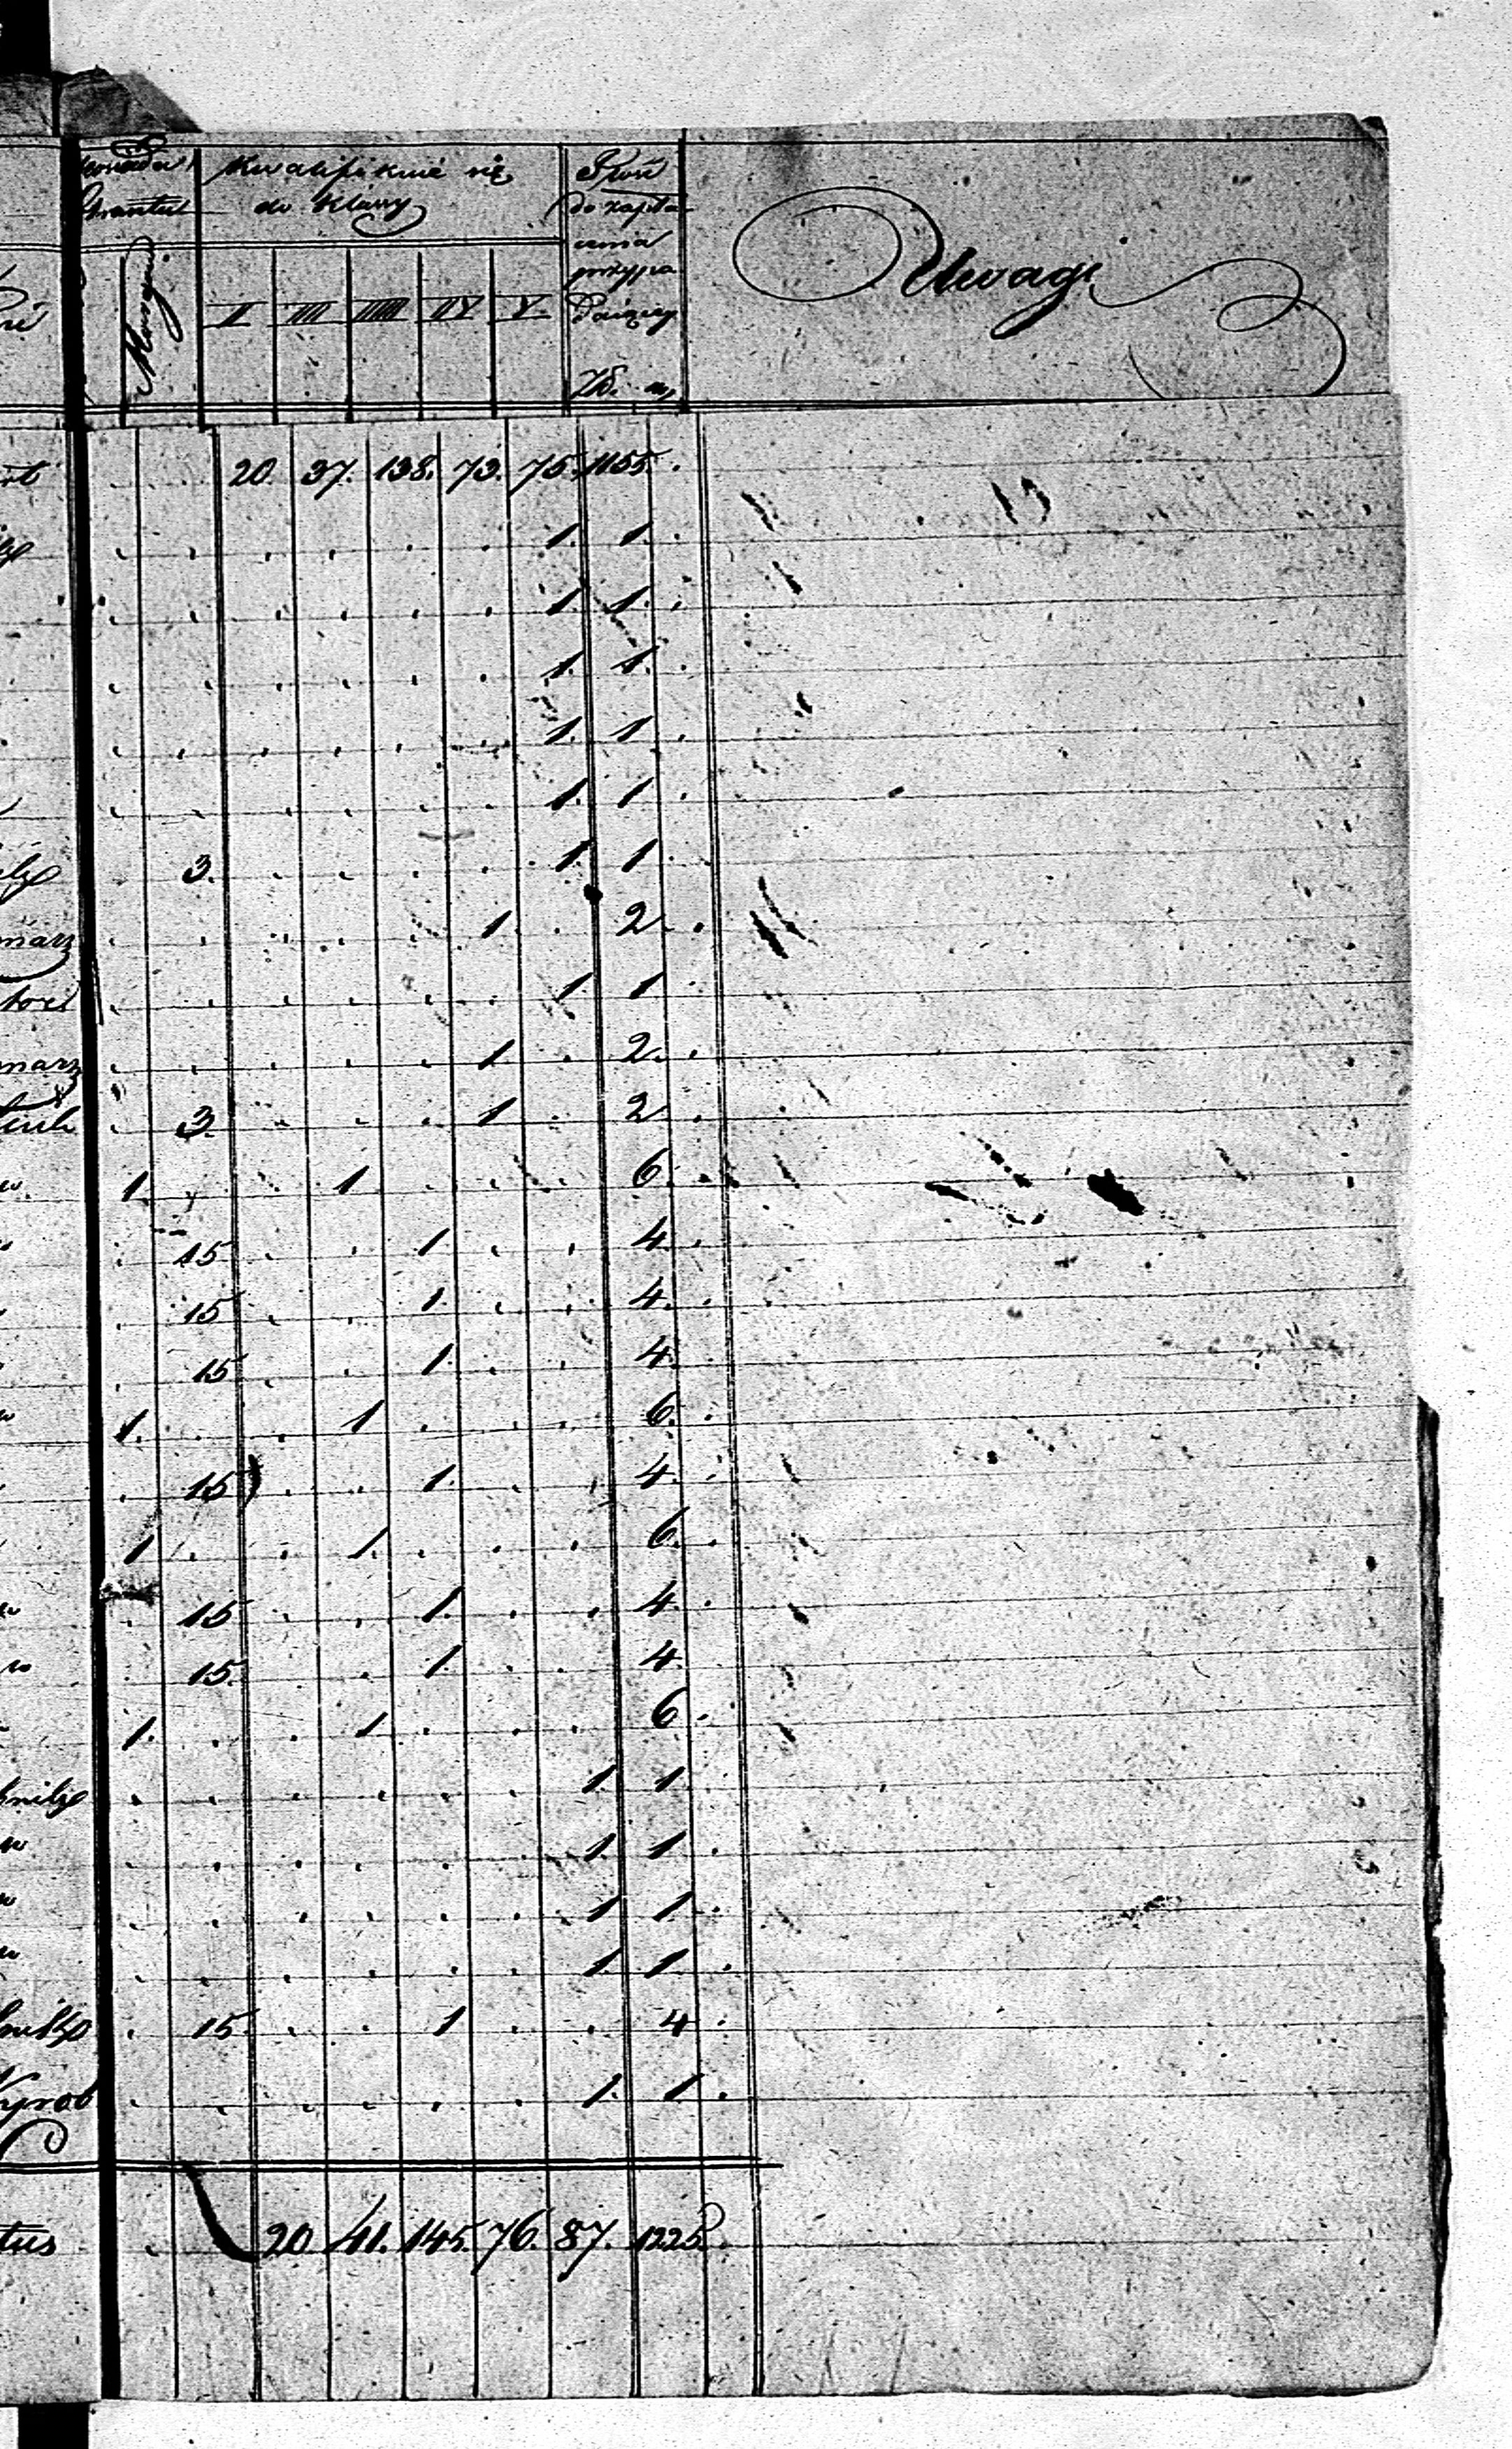 Kwalifikuie się
do Klassy
Ilość
do zapła
cenia
przypa
Uwagi
Morgi
II III IIII IV V.
Zł. gr
20. 37. 138. 73. 75. 1155.
1. 1.
1. 1.
1. 1.
1. 1.
1. 1.
3. 1. 1.
marz 1. 2.
1. 1.
marz 1. 2.
3. 1. 2.
1. 1. 6.
15 1. 4.
15 1. 4.
15 1. 4.
1. 1. 6.
15 1. 4.
1. 1. 6.
15 1. 4.
15. 1. 4.
1. 1. 6.
1. 1.
1. 1.
1. 1.
1. 1.
15 1. 4.
Wyrob 1. 1.
tus 20. 41. 145. 76. 87. 1225.